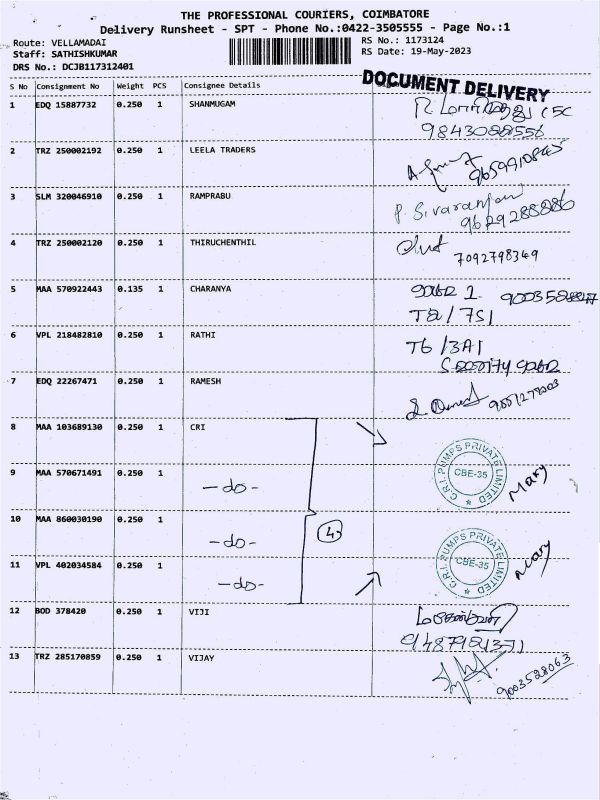 THE PROFESSIONAL COURIERS, COIMBATORE
Delivery Runsheet - SPT - Phone No.:0422-3505555 - Page No.:1
Route: VELLAMADAI
RS No.: 1173124
Staff: SATHISHKUMAR
RS Date: 19-May-2023
DRS No.: DCJB117312401
DOCUMENT DELIVERY
S No Consignment No Weight PCS Consignee Details
1 EDQ 15887732 0.250 1 SHANMUGAM
2 TRZ 250002192 0.250 1 LEELA TRADERS
3 SLM 320046910 0.250 1 RAMPRABU
P. Sivaranjani
9629288886
4 TRZ 250002120 0.250 1 THIRUCHENTHIL
7092798349
5 MAA 570922443 0.135 1 CHARANYA
T2/7S1
6 VPL 218482810 0.250 1 RATHI
T6/3A1
7 EDQ 22267471 0.250 1 RAMESH
8 MAA 103689130 0.250 1 CRI
C.R.I. PUMPS PRIVATE LIMITED
CBE-35
9 MAA 570671491 0.250 1 -do-
Mary
10 MAA 860030190 0.250 1 -do-
4
C.R.I. PUMPS PRIVATE LIMITED
CBE-35
11 VPL 402034584 0.250 1 -do-
Mary
12 BOD 378420 0.250 1 VIJI
13 TRZ 285170859 0.250 1 VIJAY
9003528063